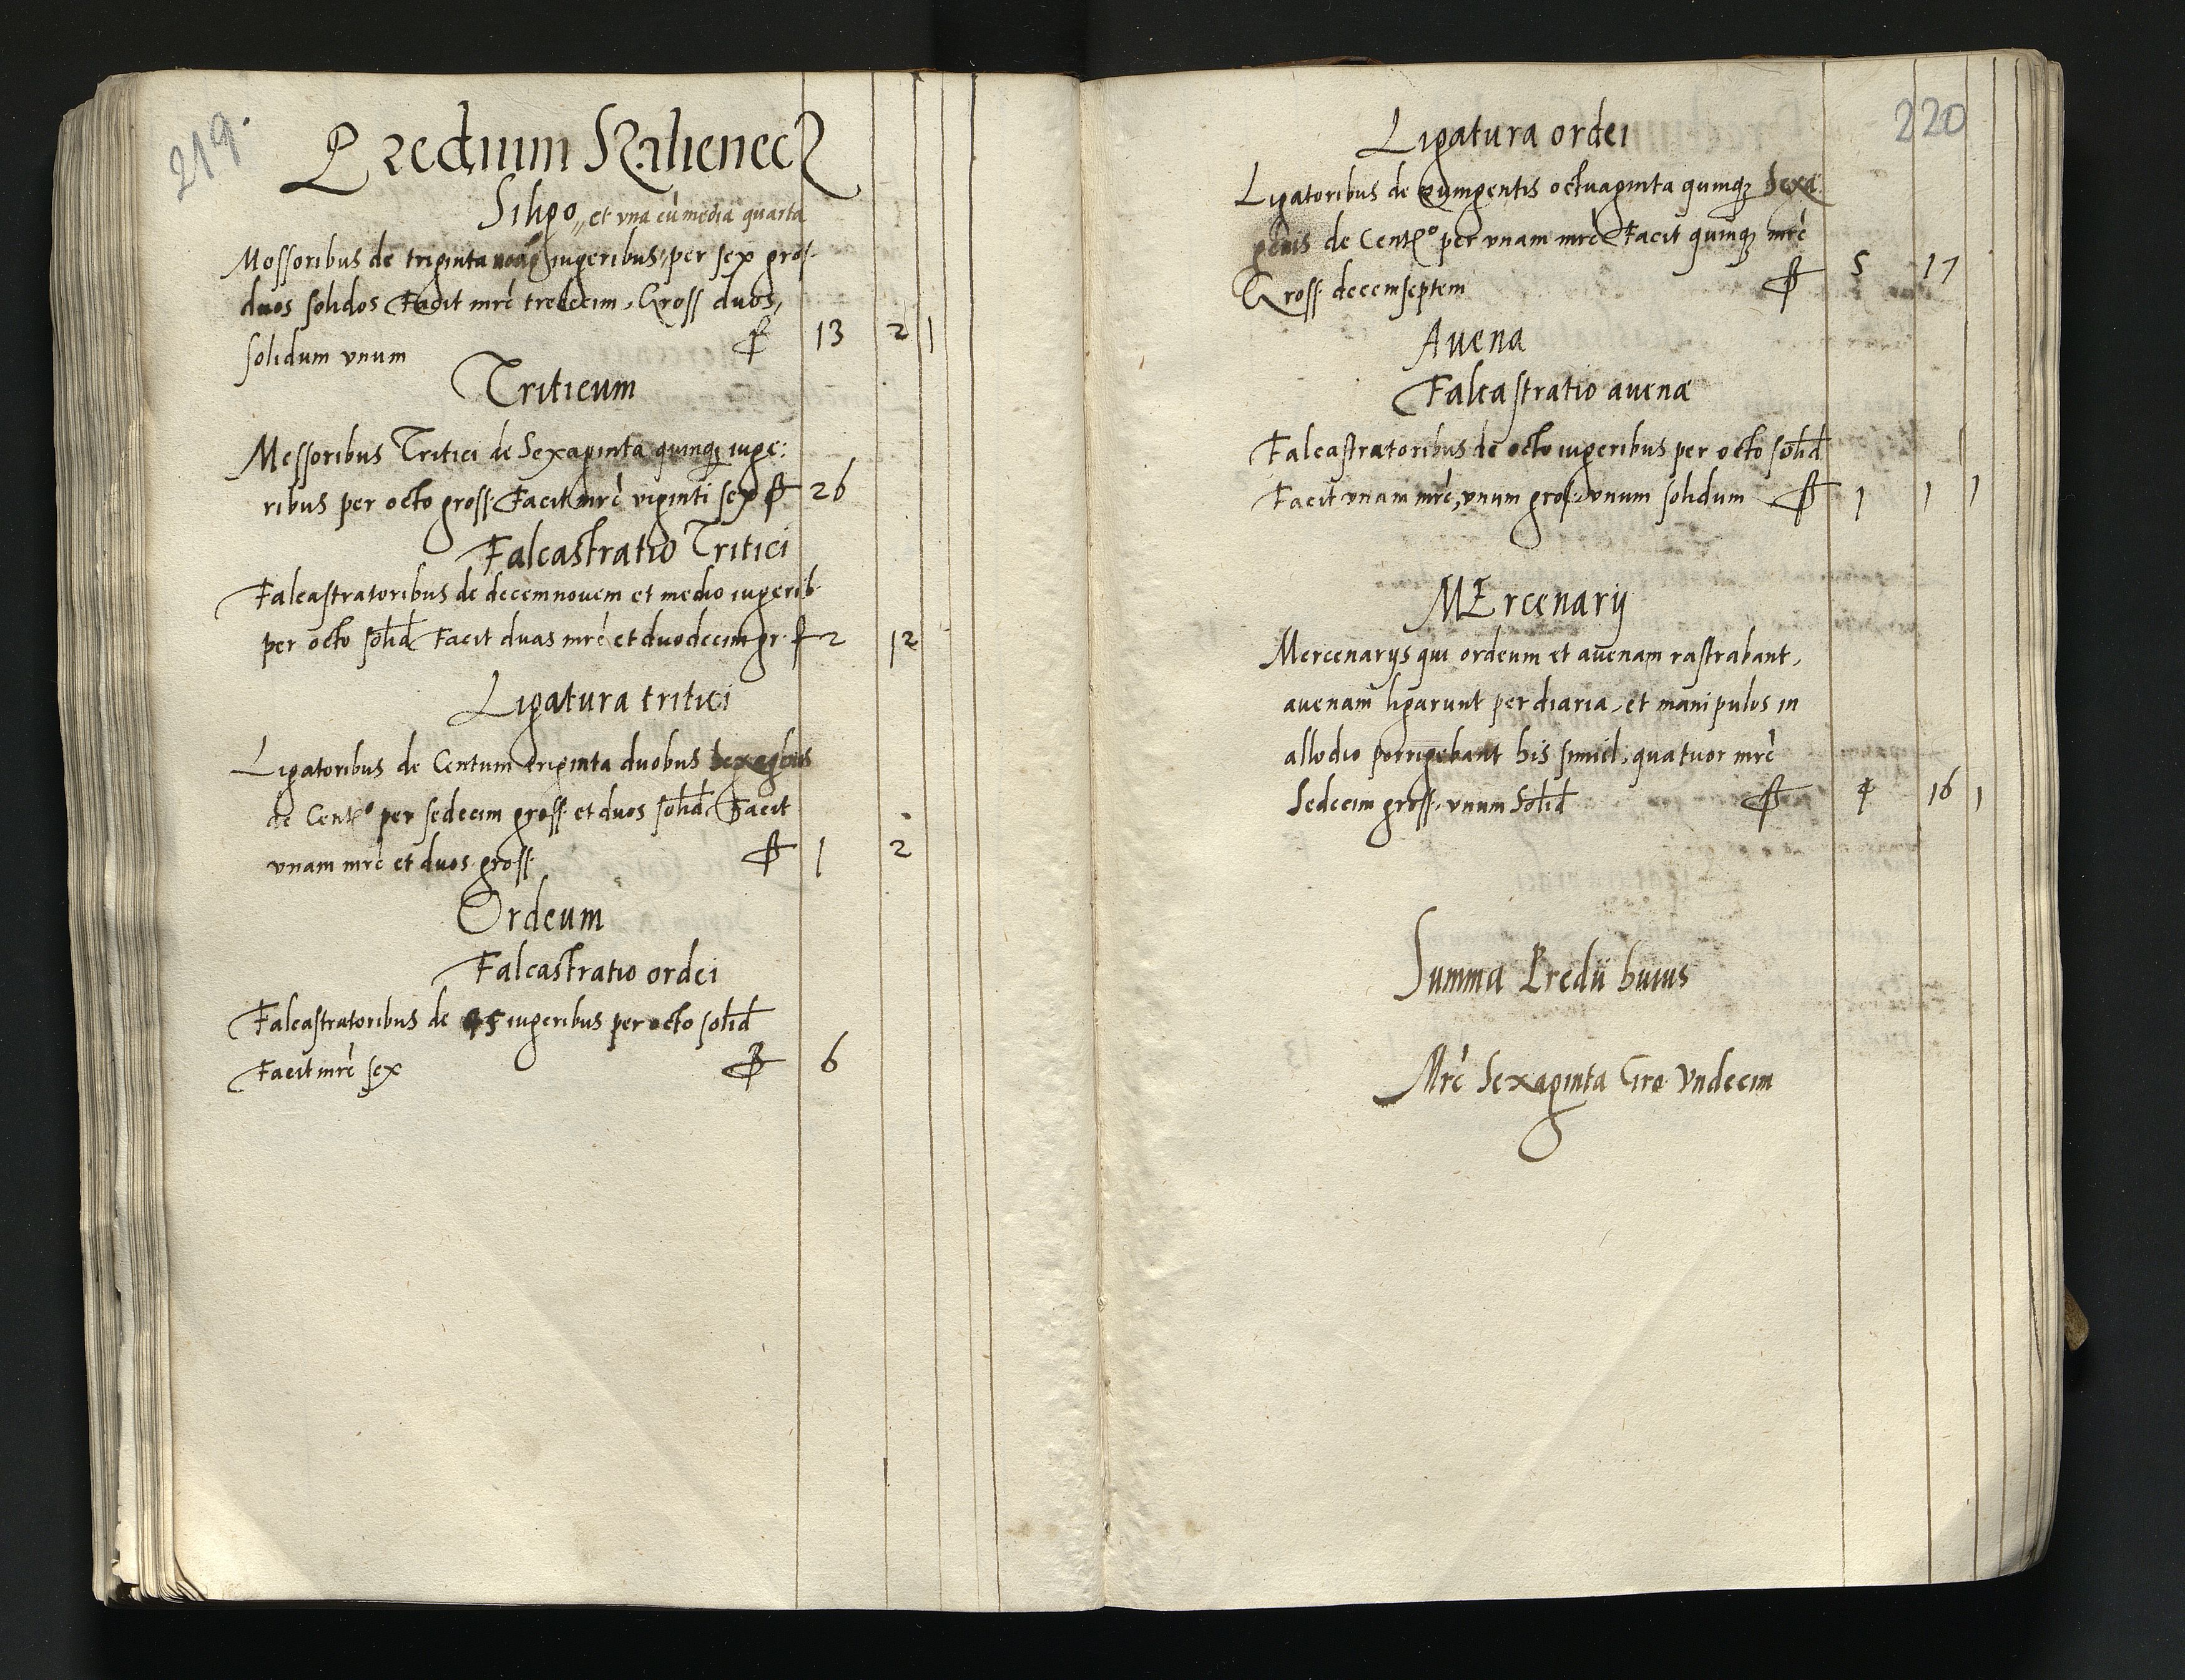 219.
Predium Kalieneck
Siligo, et vna cū media quarta
Mossoribus de triginta iugeribus, per sex gros.
duos solidos Facit mrc tredecim, Gross duos,
solidum vnum 13 2 1
Triticum
Messoribus Tritici de Sexaginta quinqꝫ iuge:
ribus per octo gross. Facit mrc viginti sex 26
Falcastratio Tritici
Falcastratoribus de decemnouem et medio iugerib
per octo solid Facit duas mrc et duodecim gr. 2 12
Ligatura tritici
Ligatoribus de Centum triginta duobus sexagenis
de Centº per sedecim gross et duos solid. Facit
vnam mrc et duos gross. 1 2
Ordeum
Falcastratio ordei
Falcastratoribus de 45 iugeribus per octo solid
Facit mrc sex 6
220
Ligatura ordei
Ligatoribus de quingentis octuaginta quinqꝫ sexa:
genis de Centº per vnam mrc Facit quinqꝫ mrc
Gross. decemseptem 5 17
Auena
Falcastratio auenæ
Falcastratoribus de octo iugeribus per octo solid
Facit vnam mrc, vnum gros. vnum solidum 1 1 1
MErcenarij
Mercenarijs qui ordeum et auenam rastrabant,
auenam ligarunt per diaria, et manipulos in
allodio porrigebant his simul, quatuor mrc
Sedecim gross. vnum Solid 4 16 1
Summa Predii huius
Mrc Sexaginta Gro Vndecim